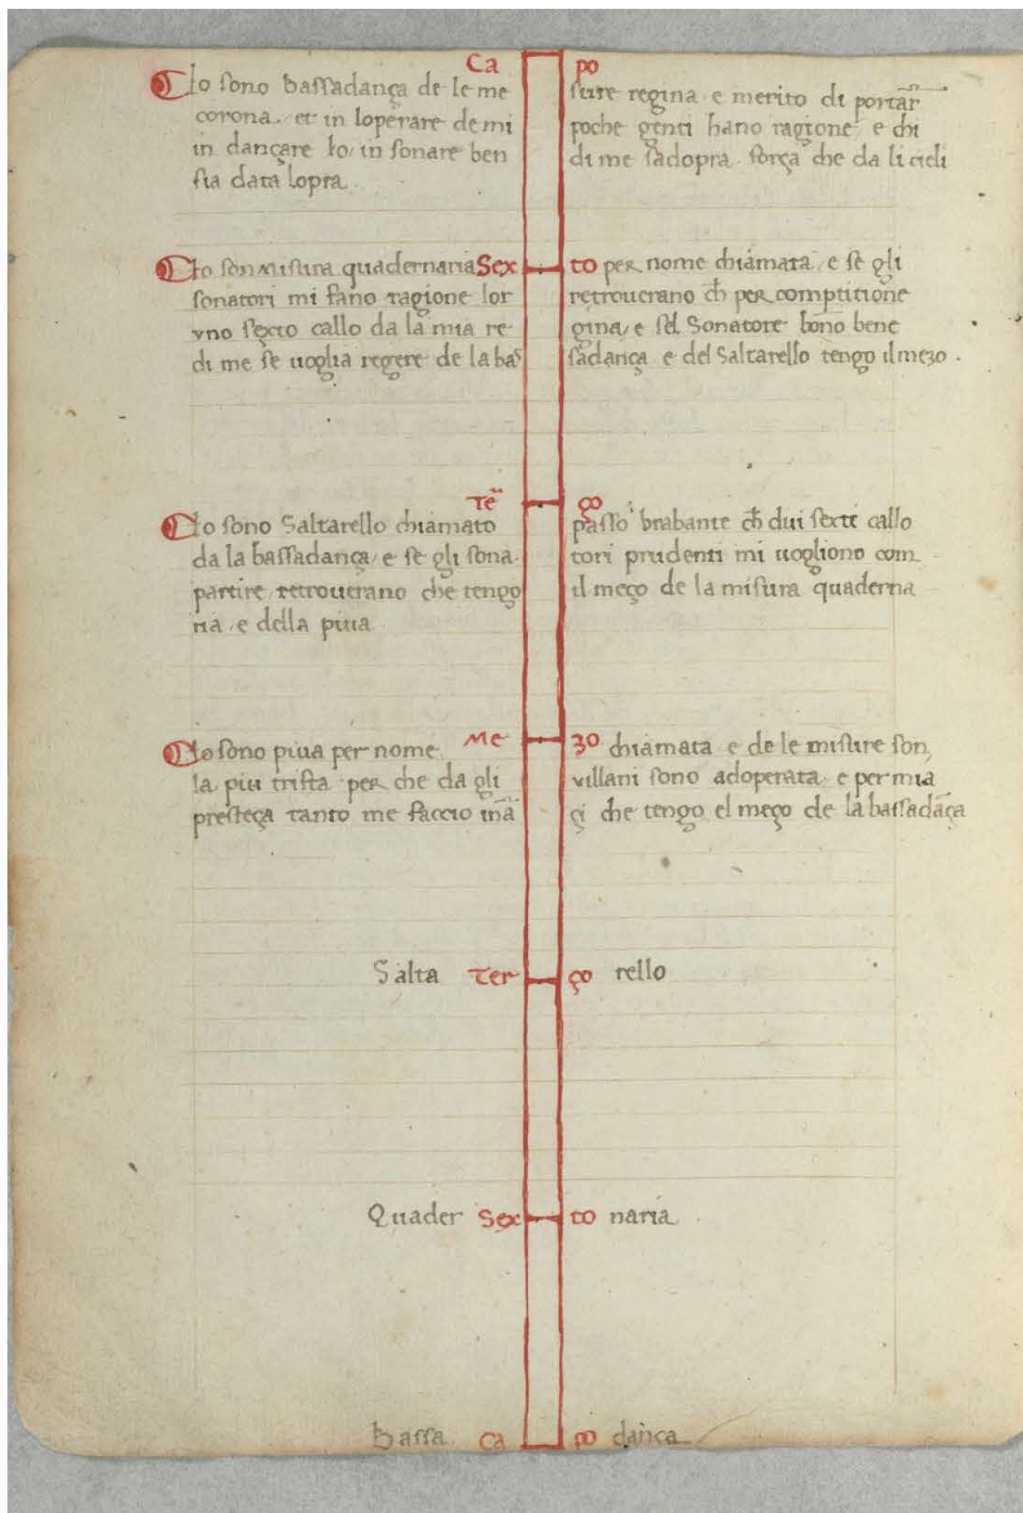 Ca po
Io sono bassadança de le me sure regina e merito di portar̄
corona. et in loperare de mi poche genti hano ragione e chi
in dançare lo/ in sonare ben di me sadopra força che da li cieli
sia data lopra.
Io son misura quadernaria Sex to per nome chiamata / e se gli
sonatori mi fano ragione lor retroverano ch̄ per comptitione
vno sexto callo da la mia re gina / e sel Sonatore bōno bene
di me se voglia regere de la bas sadança e del Saltarello tengo il mezo .
Te ço
Io sono Saltarello chiamato passo brabante ch̄ dui sexti callo
da la bassadança / e se gli sona tori prudenti mi vogliono com
partire retroverano che tengo il meço de la misura quaderna
ria . e della piva
Io sono piva per nome Me zo chiamata e de le misure son
la piu trista per che da gli villani sono adoperata e per mia
presteça tanto me faccio inā çi che tengo el meço de la bassadāça
Salta Ter ço rello
Quader Sex to naria .
Bassa Ca po dança